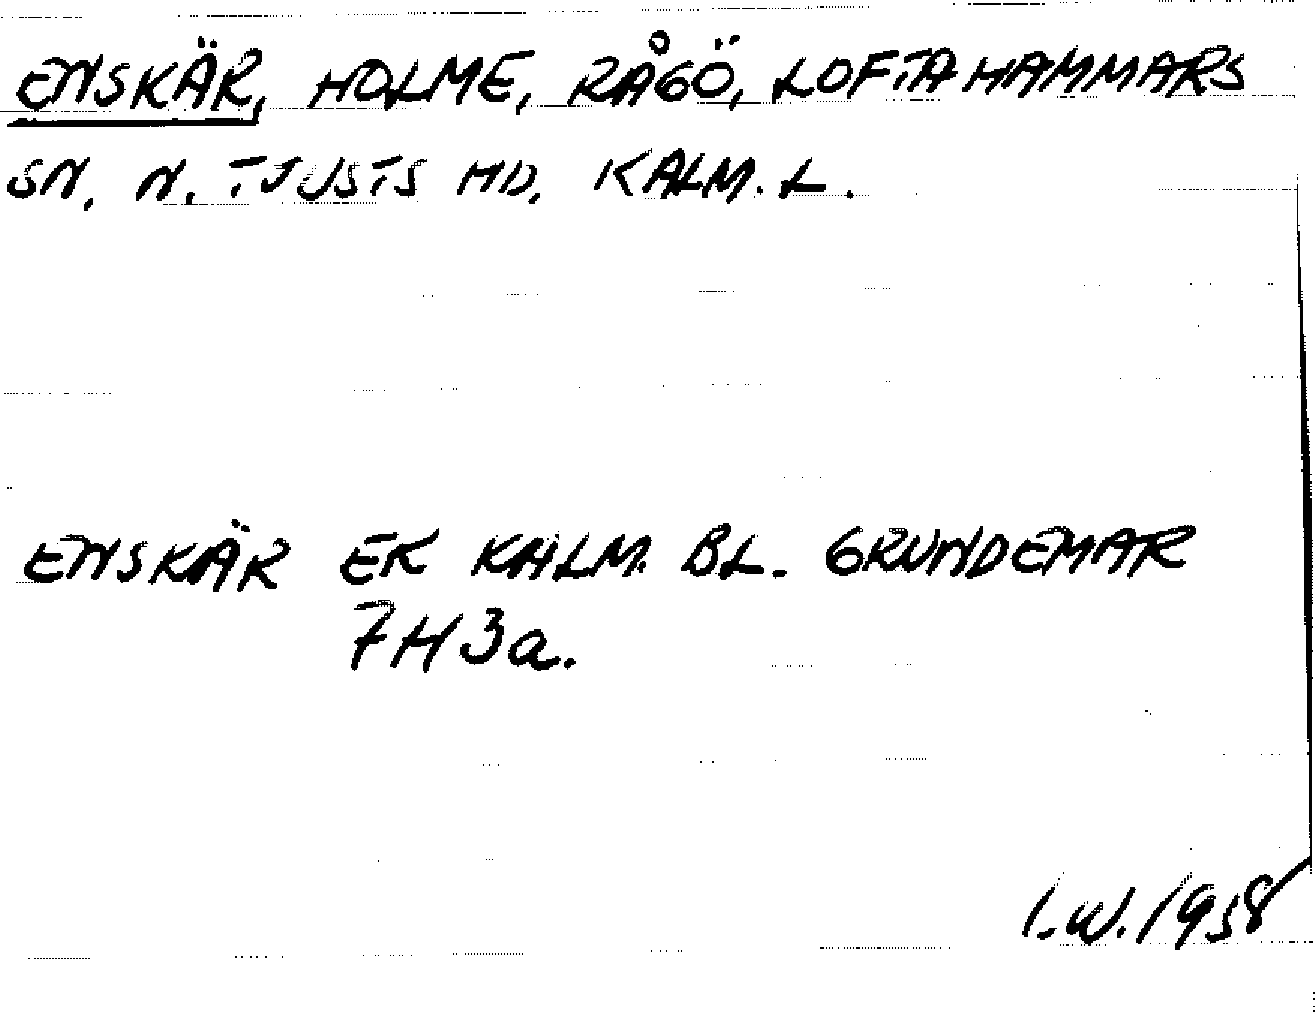 ENSKÄR, HOLME, RÅGÖ, LOFTAHAMMARS
SN. N. TJUSTS HD, KALM. L.
ENSKÄR EK KALM. BL. GRUNDEMAR
7H3a.
I.W. 1958